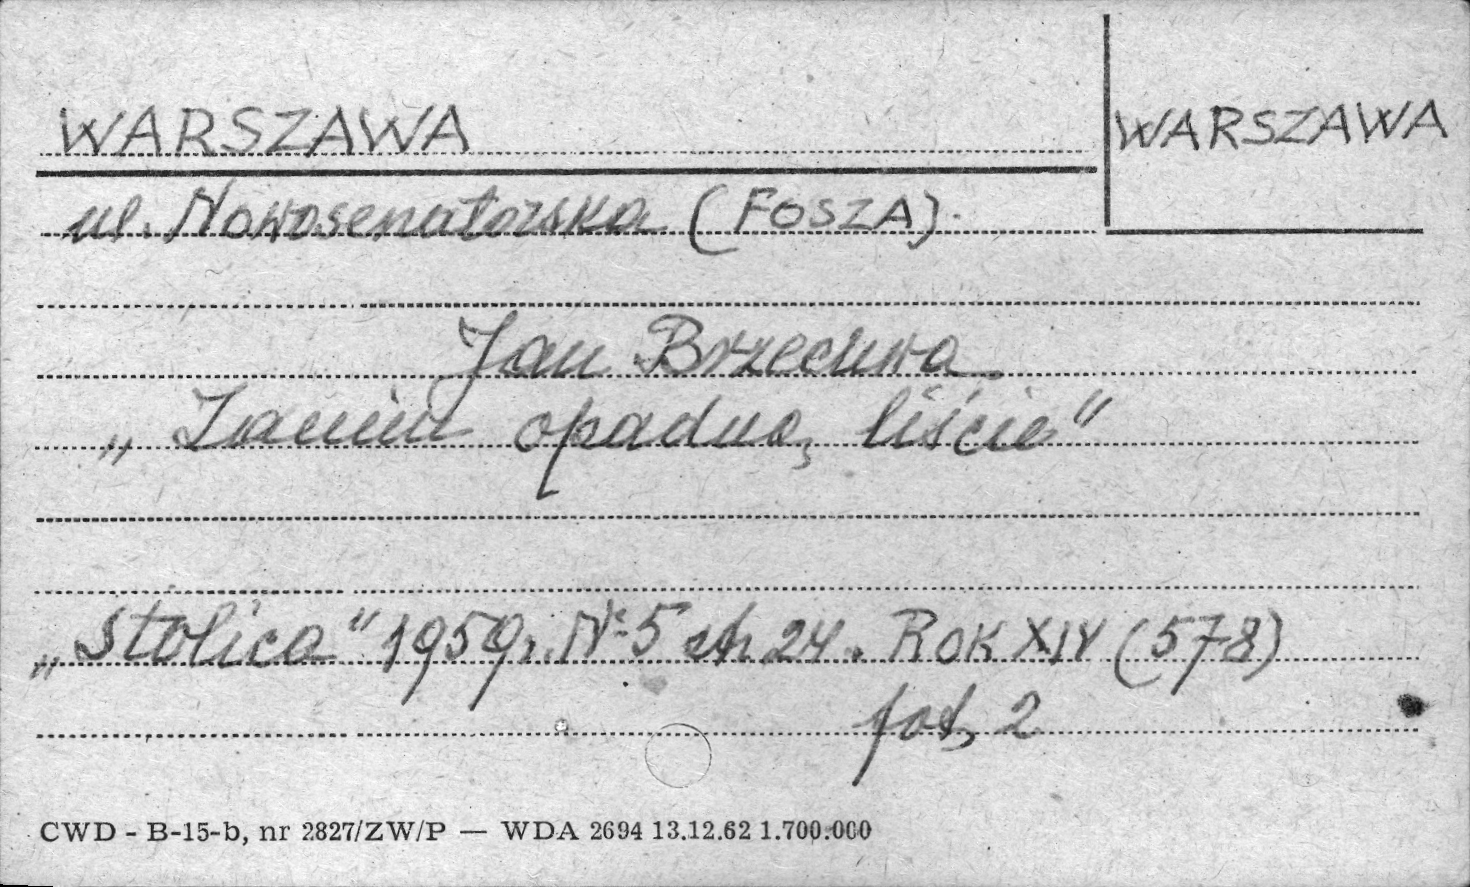 WARSZAWA
WARSZAWA
ul. Nowosenatorska (FOSZA).
Jan Brzechwa
„Zanim opadną liście"
„Stolica" 1959r. Nr 5 str. 24. Rok XIV (578)
fot. 2
CWD - B-15-b, nr 2827/ZW/P — WDA 2694 13.12.62 1.700.000